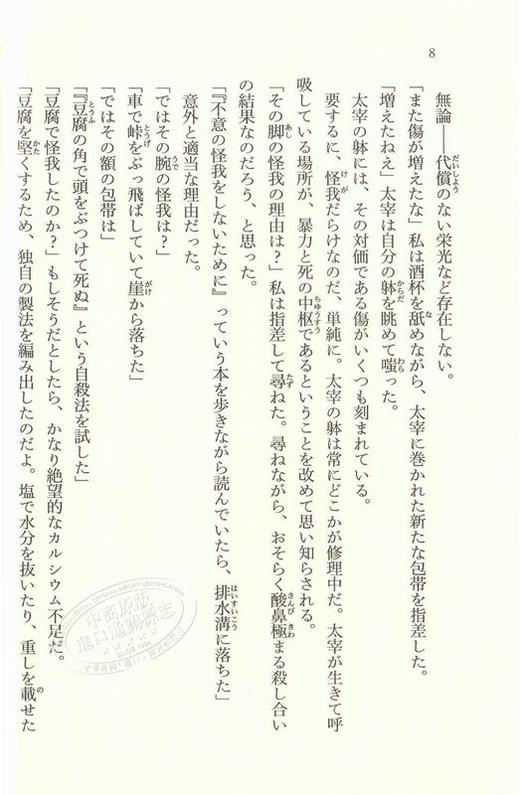 8
無論――代償のない栄光など存在しない。
「また傷が増えたな」私は酒杯を舐めながら、太宰に巻かれた新たな包帯を指差した。
「増えたねえ」太宰は自分の躰を眺めて嗤った。
太宰の躰には、その対価である傷がいくつも刻まれている。
要するに、怪我だらけなのだ、単純に。太宰の躰は常にどこかが修理中だ。太宰が生きて呼
吸している場所が、暴力と死の中枢であるということを改めて思い知らされる。
「その脚の怪我の理由は？」私は指差して尋ねた。尋ねながら、おそらく酸鼻極まる殺し合い
の結果なのだろう、と思った。
「『不意の怪我をしないために』っていう本を歩きながら読んでいたら、排水溝に落ちた」
意外と適当な理由だった。
「ではその腕の怪我は？」
「車で峠をぶっ飛ばしていて崖から落ちた」
「ではその額の包帯は」
「『豆腐の角で頭をぶつけて死ぬ』という自殺法を試した」
「豆腐で怪我したのか？」もしそうだとしたら、かなり絶望的なカルシウム不足だ。
「豆腐を堅くするため、独自の製法を編み出したのだよ。塩で水分を抜いたり、重しを載せた